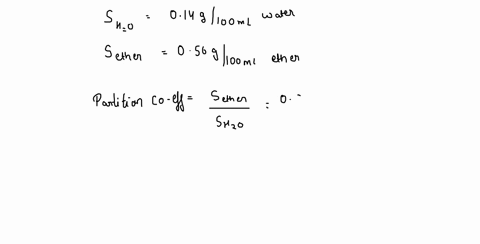 S_H₂O = 0.14 g/100mL water
S_ether = 0.56 g/100mL ether
Partition co-eff = S_ether / S_H₂O = 0.